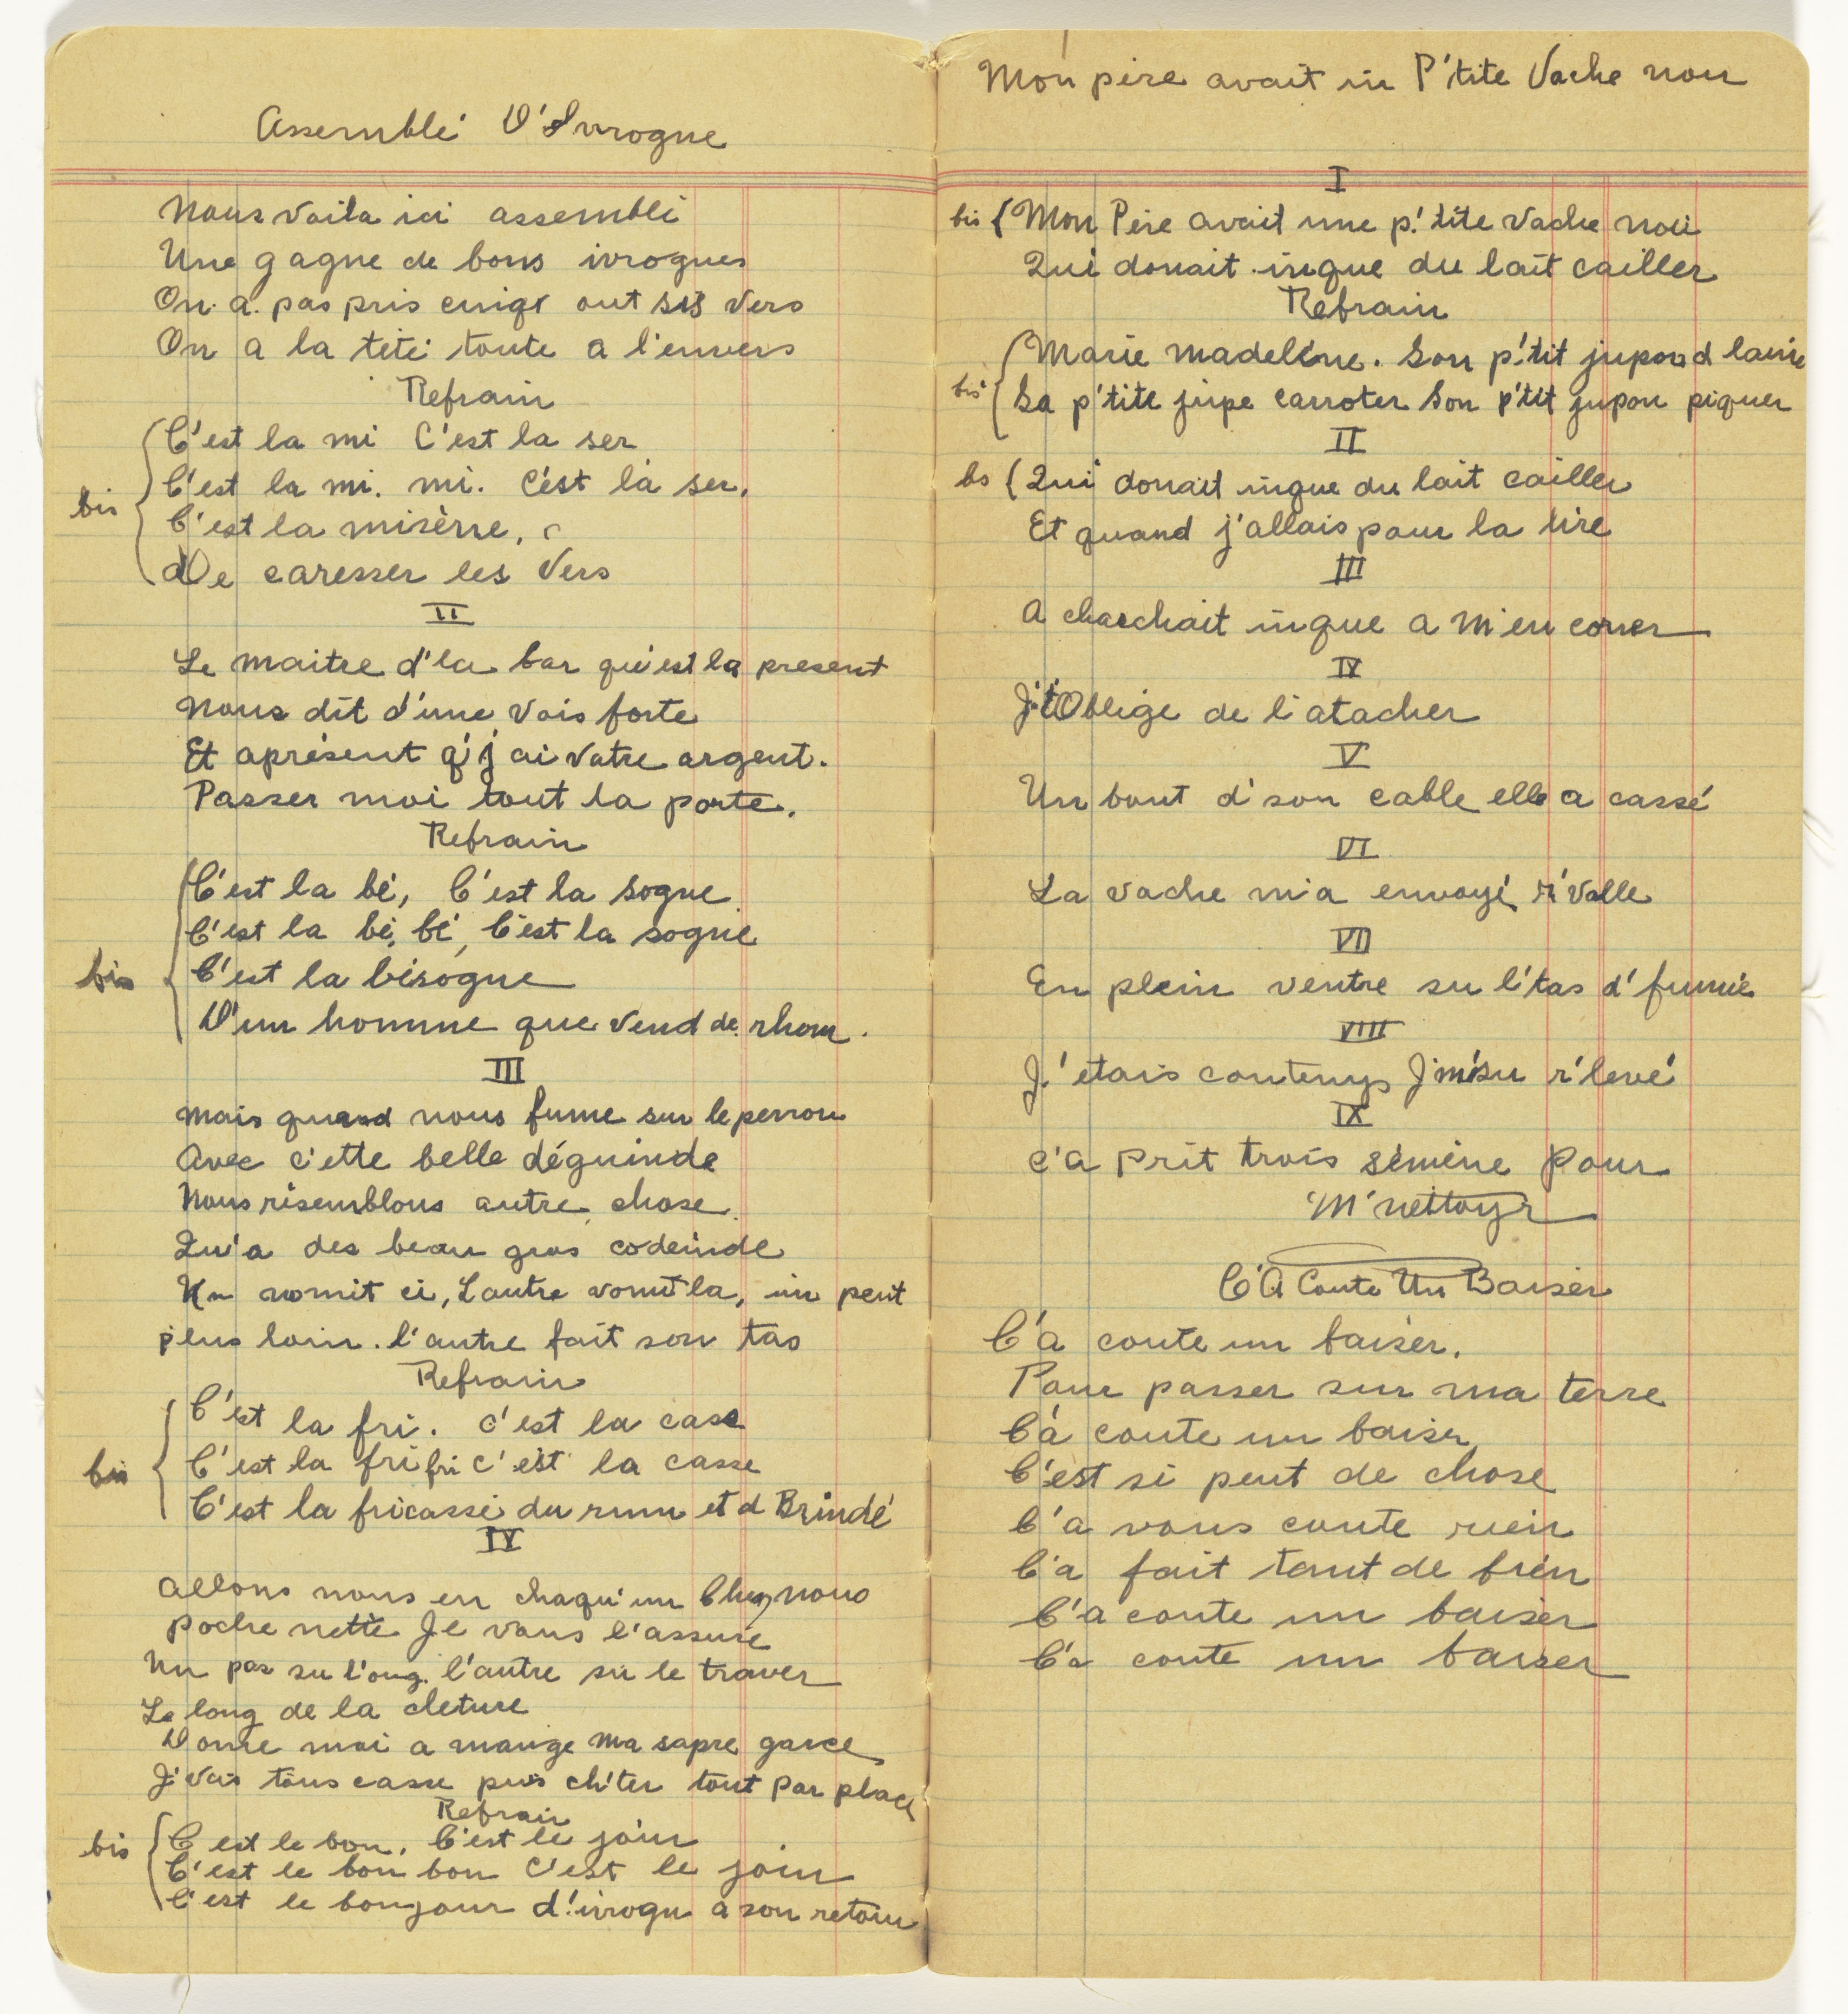 Assemblé D'Ivrogne
Nous voila ici assemblé
Une gagne de bons ivrogues
On a pas pris ont ses vers
On a la tété toute a l'envers
Refrain
C'est la mi C'est la ser
C'est la mi. mi. C'ést la ser.
bis
C'est la misèrre,
De caresser les Vers
II
Le maitre d'la bar qu'est la present
Nous dit d'une vois forte
Et aprésent q'j'ai votre argent.
Passer moi tout la porte.
Refrain
C'est la bé, C'est la sogne
C'est la bé, bé, C'est la sogne
bis C'est la bésogne
D'un homme que vend de rhom.
III
Mais quand nous fume sur le perron
Avec c'ette belle déguinde
Nous résemblous autre chose
Qu'a des beau gros codeinde
Un vomit ci, L'autre vomit la, un peut
plus loin. l'autre fait son tas
Refrain
C'est la fri. C'est la casse
bis C'est la fri fri c'est la casse
C'est la fricassé du rum et d Brindé
IV
Allons nous en chaqu'un Chez nous
poche nette Je vous l'assure
Un pas su l'oug. l'autre su le traver
Le long de la cleture
Donne moi a mange ma sapre garce
J'vais tous casse puis ch'ter tout par place
Refrain
bis C'est le bon, C'est le jour
C'est le bon bon C'est le jour
C'est le bonjour d'ivrogn a son retour
Mon père avait un P'tite Vache noir
I
bis Mon Père avait une p'tite vache noir
Qui donait inque du lait cailler
Refrain
Marie madeléne. Son p'tit jupon d laine
bis Sa p'tite jupe carroter Son p'tit jupon piquer
II
bis Qui donait inque du lait cailler
Et quand j'allais pour la tire
III
A charchait inque a m'en corner
IV
J't'Oblige de l'atacher
V
Un bout d'son cable elle a cassé
VI
La vache m'a envoyé r'volle
VII
En plein ventre su l'tas d'fumié
VIII
J'étais contemps J'm'su r'levé
IX
C'a prit trois séméne pour
M'nettoyr
C'A Coute Un Baiser
C'a coute un baiser.
Pour passer sur ma terre
C'a coute un baiser
C'est si peut de chose
C'a vous coute rien
C'a fait tant de bien
C'a coute un baiser
C'a coute un baiser